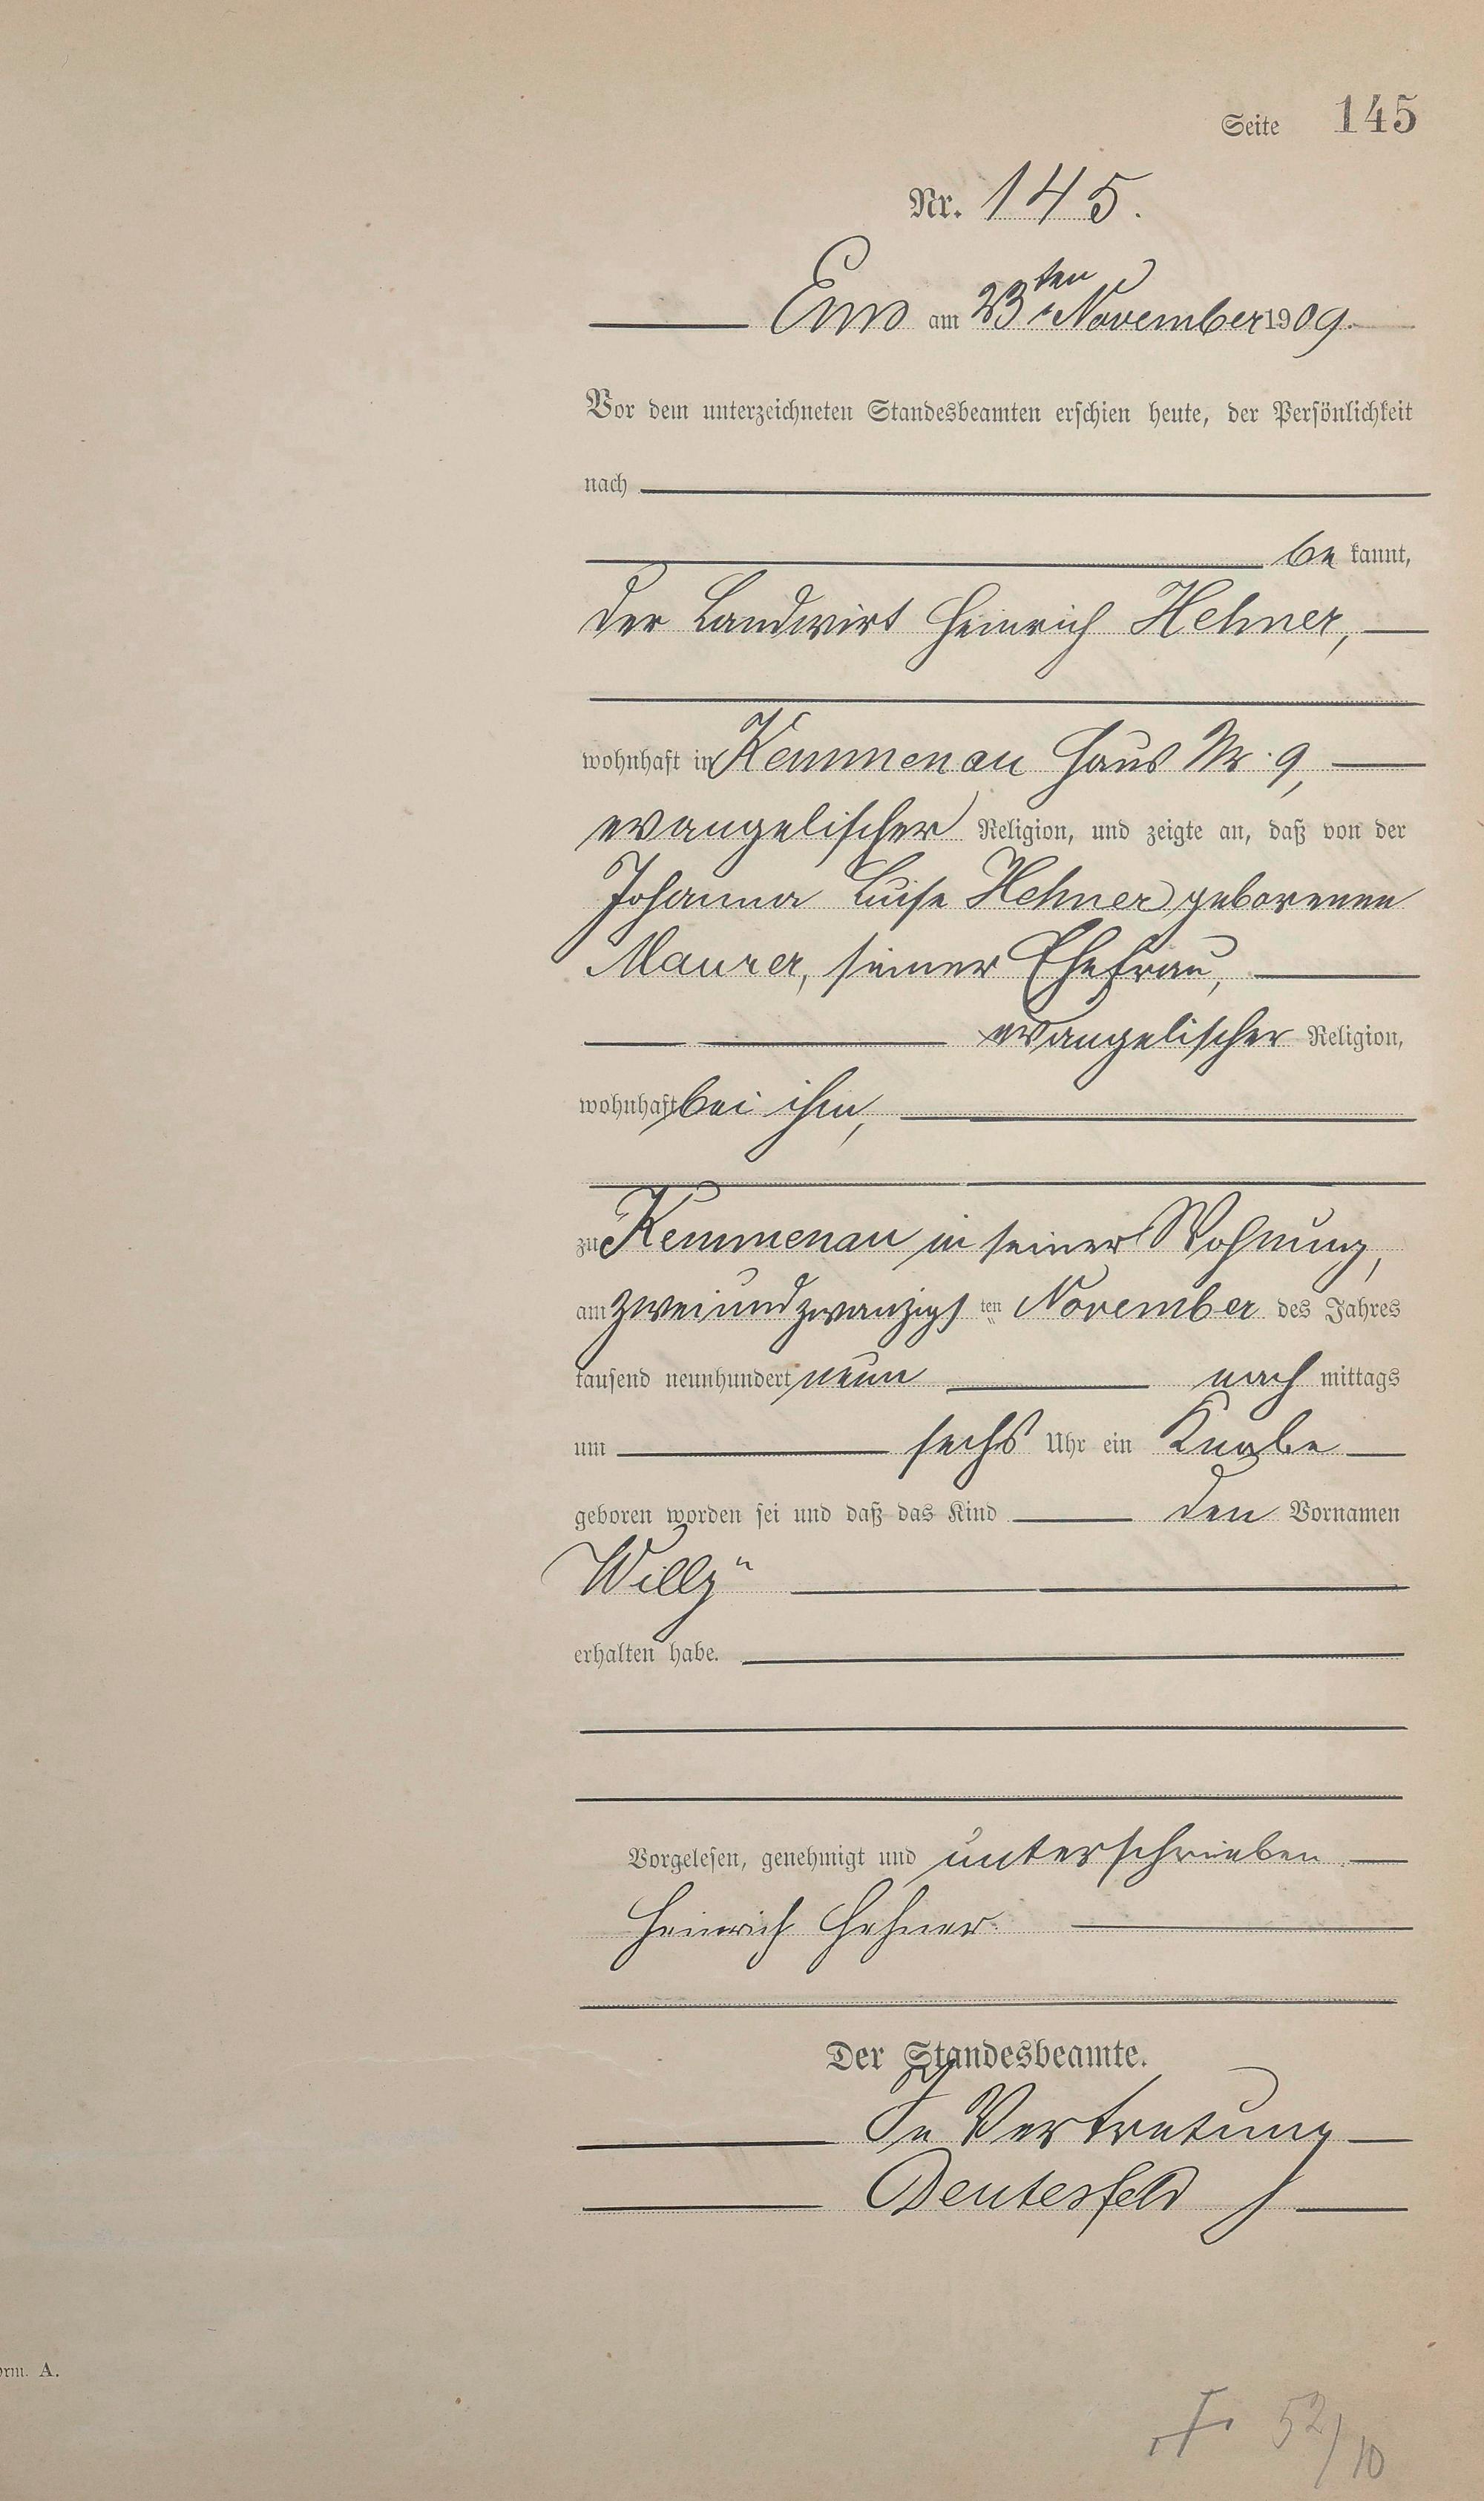 Seite 145
Nr. 145.
Ems am 23ten November 1909.
Vor dem unterzeichneten Standesbeamten erschien heute, der Persönlichkeit
nach
be kannt,
der Landwirt Heinrich Hehner,
wohnhaft in Kemmenau Haus Nr. 9,
evangelischer Religion, und zeigte an, daß von der
Johanna Luise Hehner geborenen
Maurer, seiner Ehefrau,
evangelischer Religion,
wohnhaft bei ihm,
zu Kemmenau in seiner Wohnung,
am zweiundzwanzigs ten November des Jahres
tausend neunhundert neun nach mittags
um sechs Uhr ein Knabe
geboren worden sei und daß das Kind den Vornamen
Willy"
erhalten habe.
Vorgelesen, genehmigt und unterschrieben
Heinrich Hehner.
Der Standesbeamte.
In Vertretung
Deutesfeld
orm. A.
†. 52/10